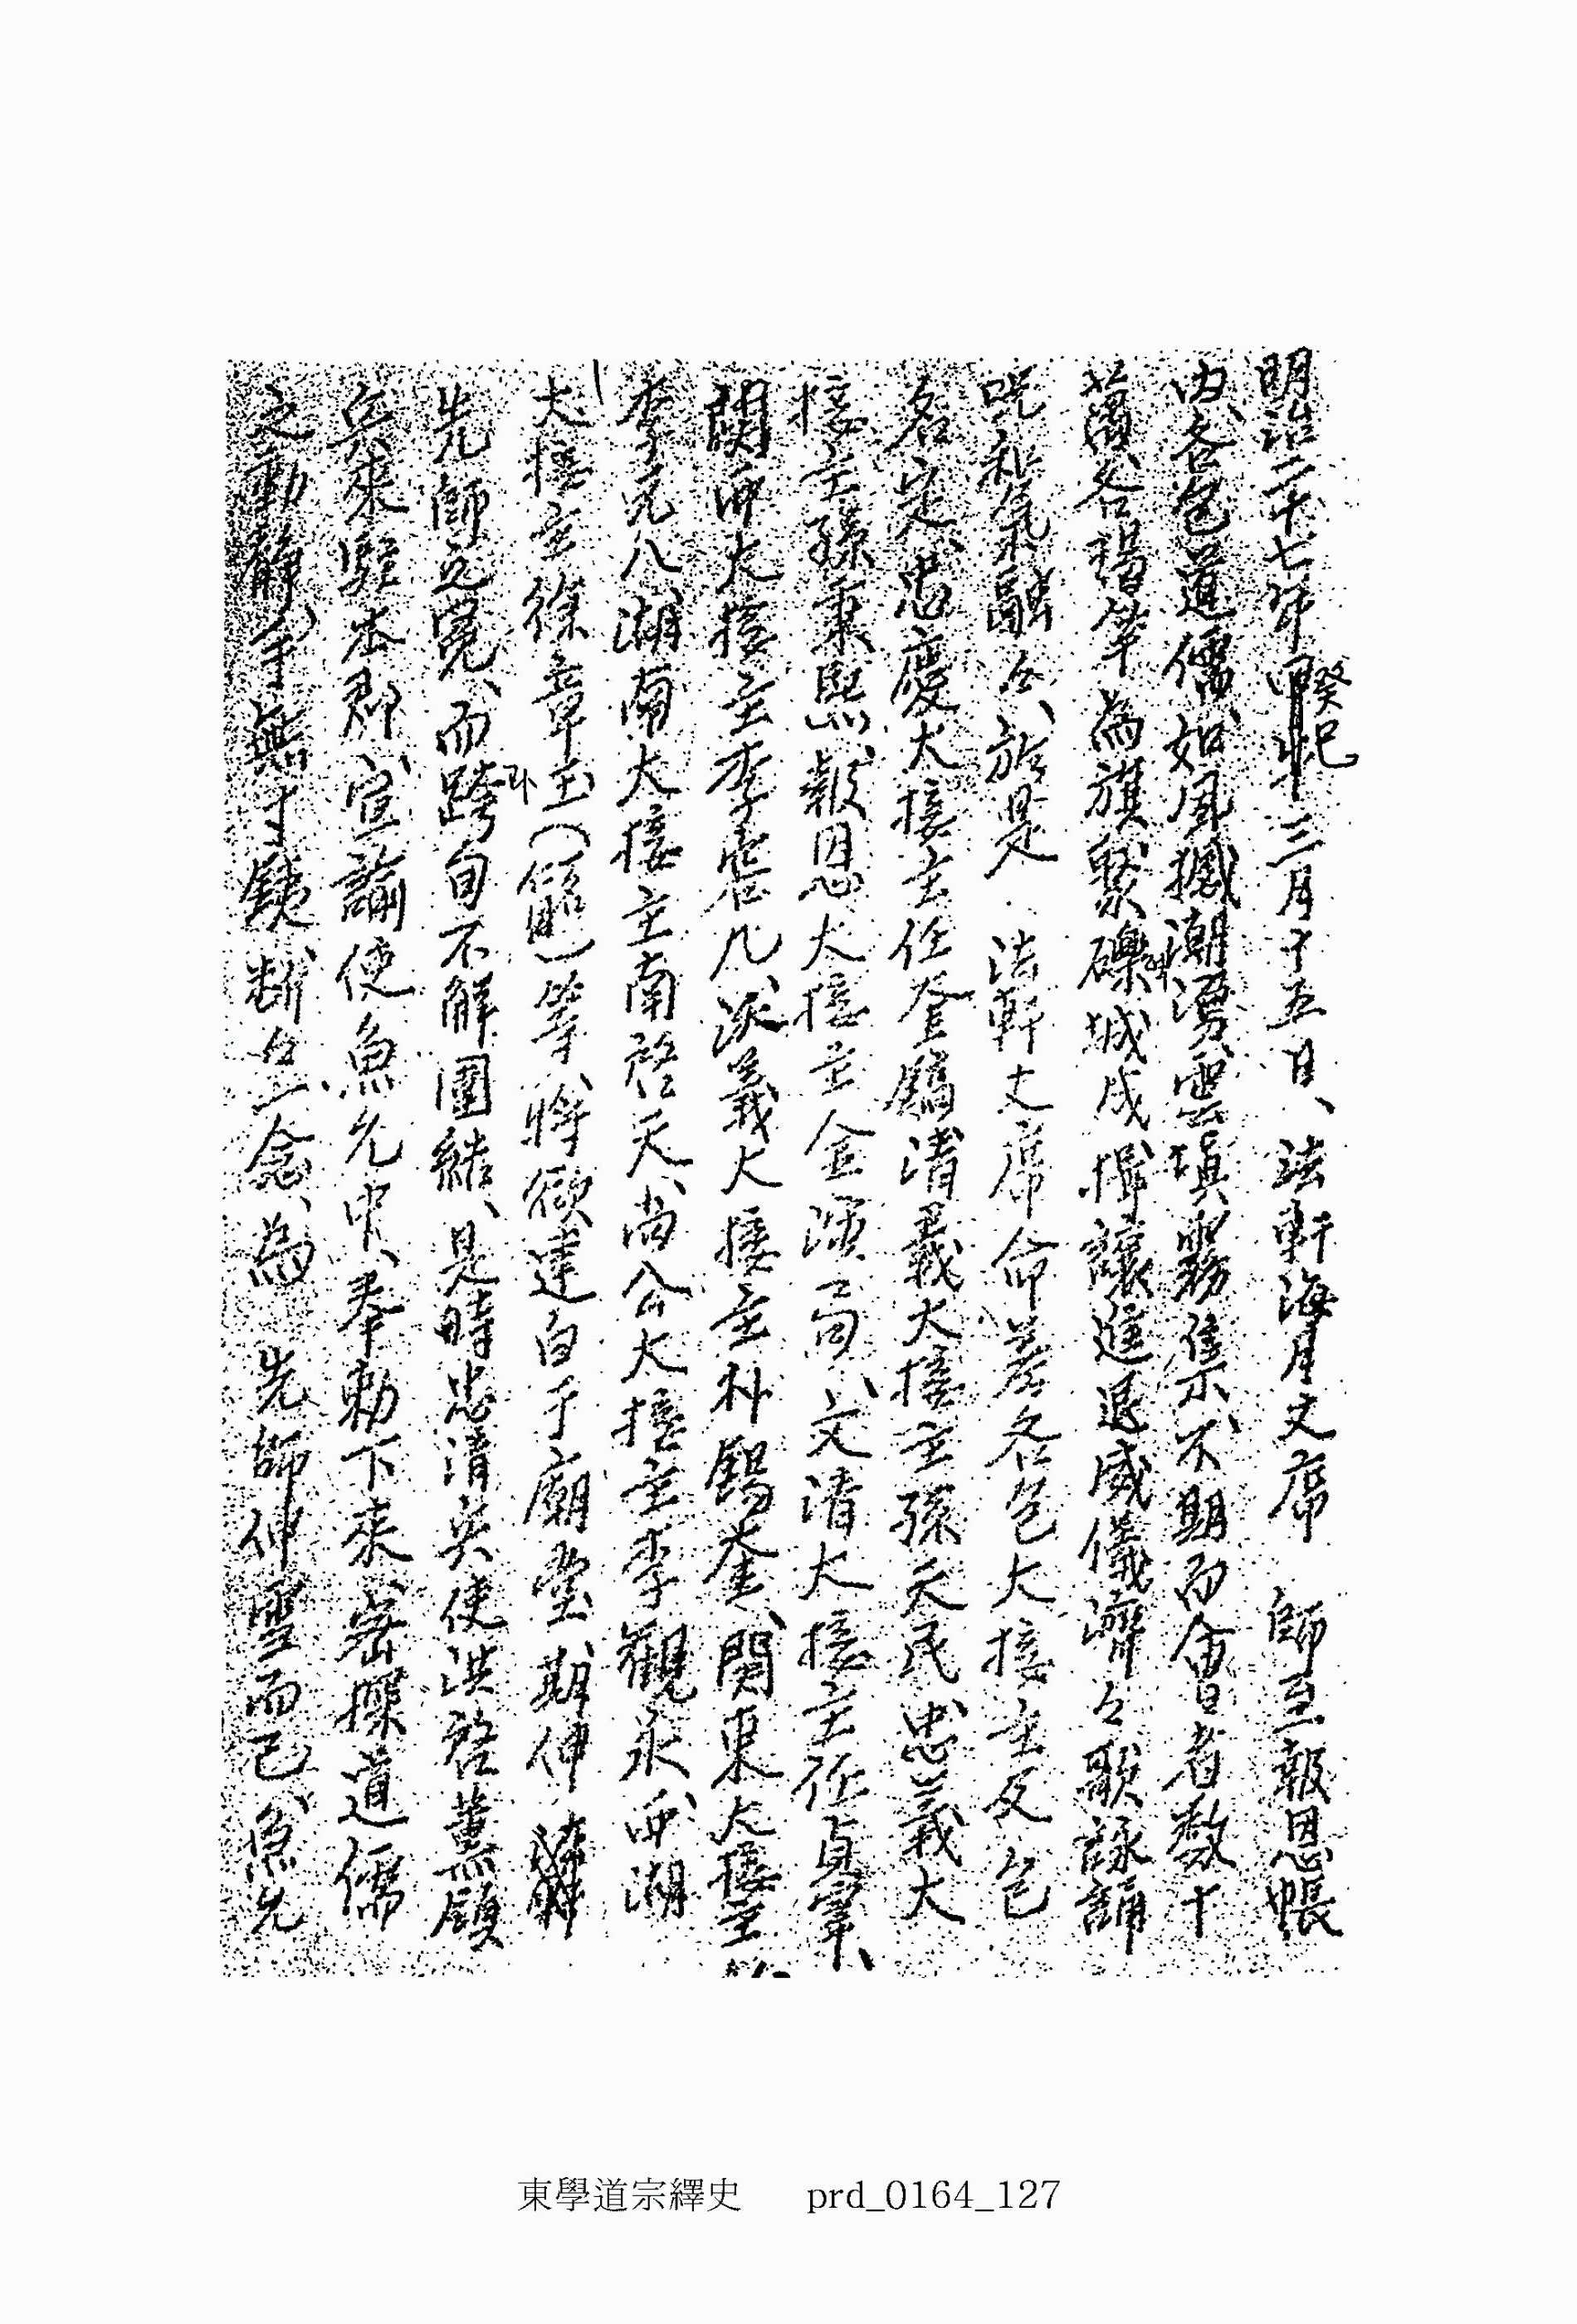 明治二十七年癸巳三月十五日、法軒海月丈席 師至報恩帳
內、各包道儒、如風撼潮湧、雲塡霧集、不期而會者數十
萬、各揭竿爲旗、繫礫城成、揖讓進退、威儀濟々、歌詠誦
呪、和氣融々、於是 法軒丈席命差各包大接主及包
名定、忠慶大接主任奎鎬、淸義大接主孫天民、忠義大
接主孫秉熙、報恩大接主金演局、文淸大接主任貞宰、
關西大接主李 几、沃義大接主朴錫奎、關東大接主
李元八、湖南大接主南啓天、尙公大接主李觀永、西湖
大接主徐章玉(  )等、將欲建白于廟堂、期伸
先師之寃、而跨旬不解團結、是時忠淸兵使洪啓薰領
兵來駐本郡、宣諭使魚允中、奉勅下來、密探道儒
之動靜、手無寸鐵、斷々一念、爲 先師伸雪而已、魚允
東學道宗繹史 prd_0164_127